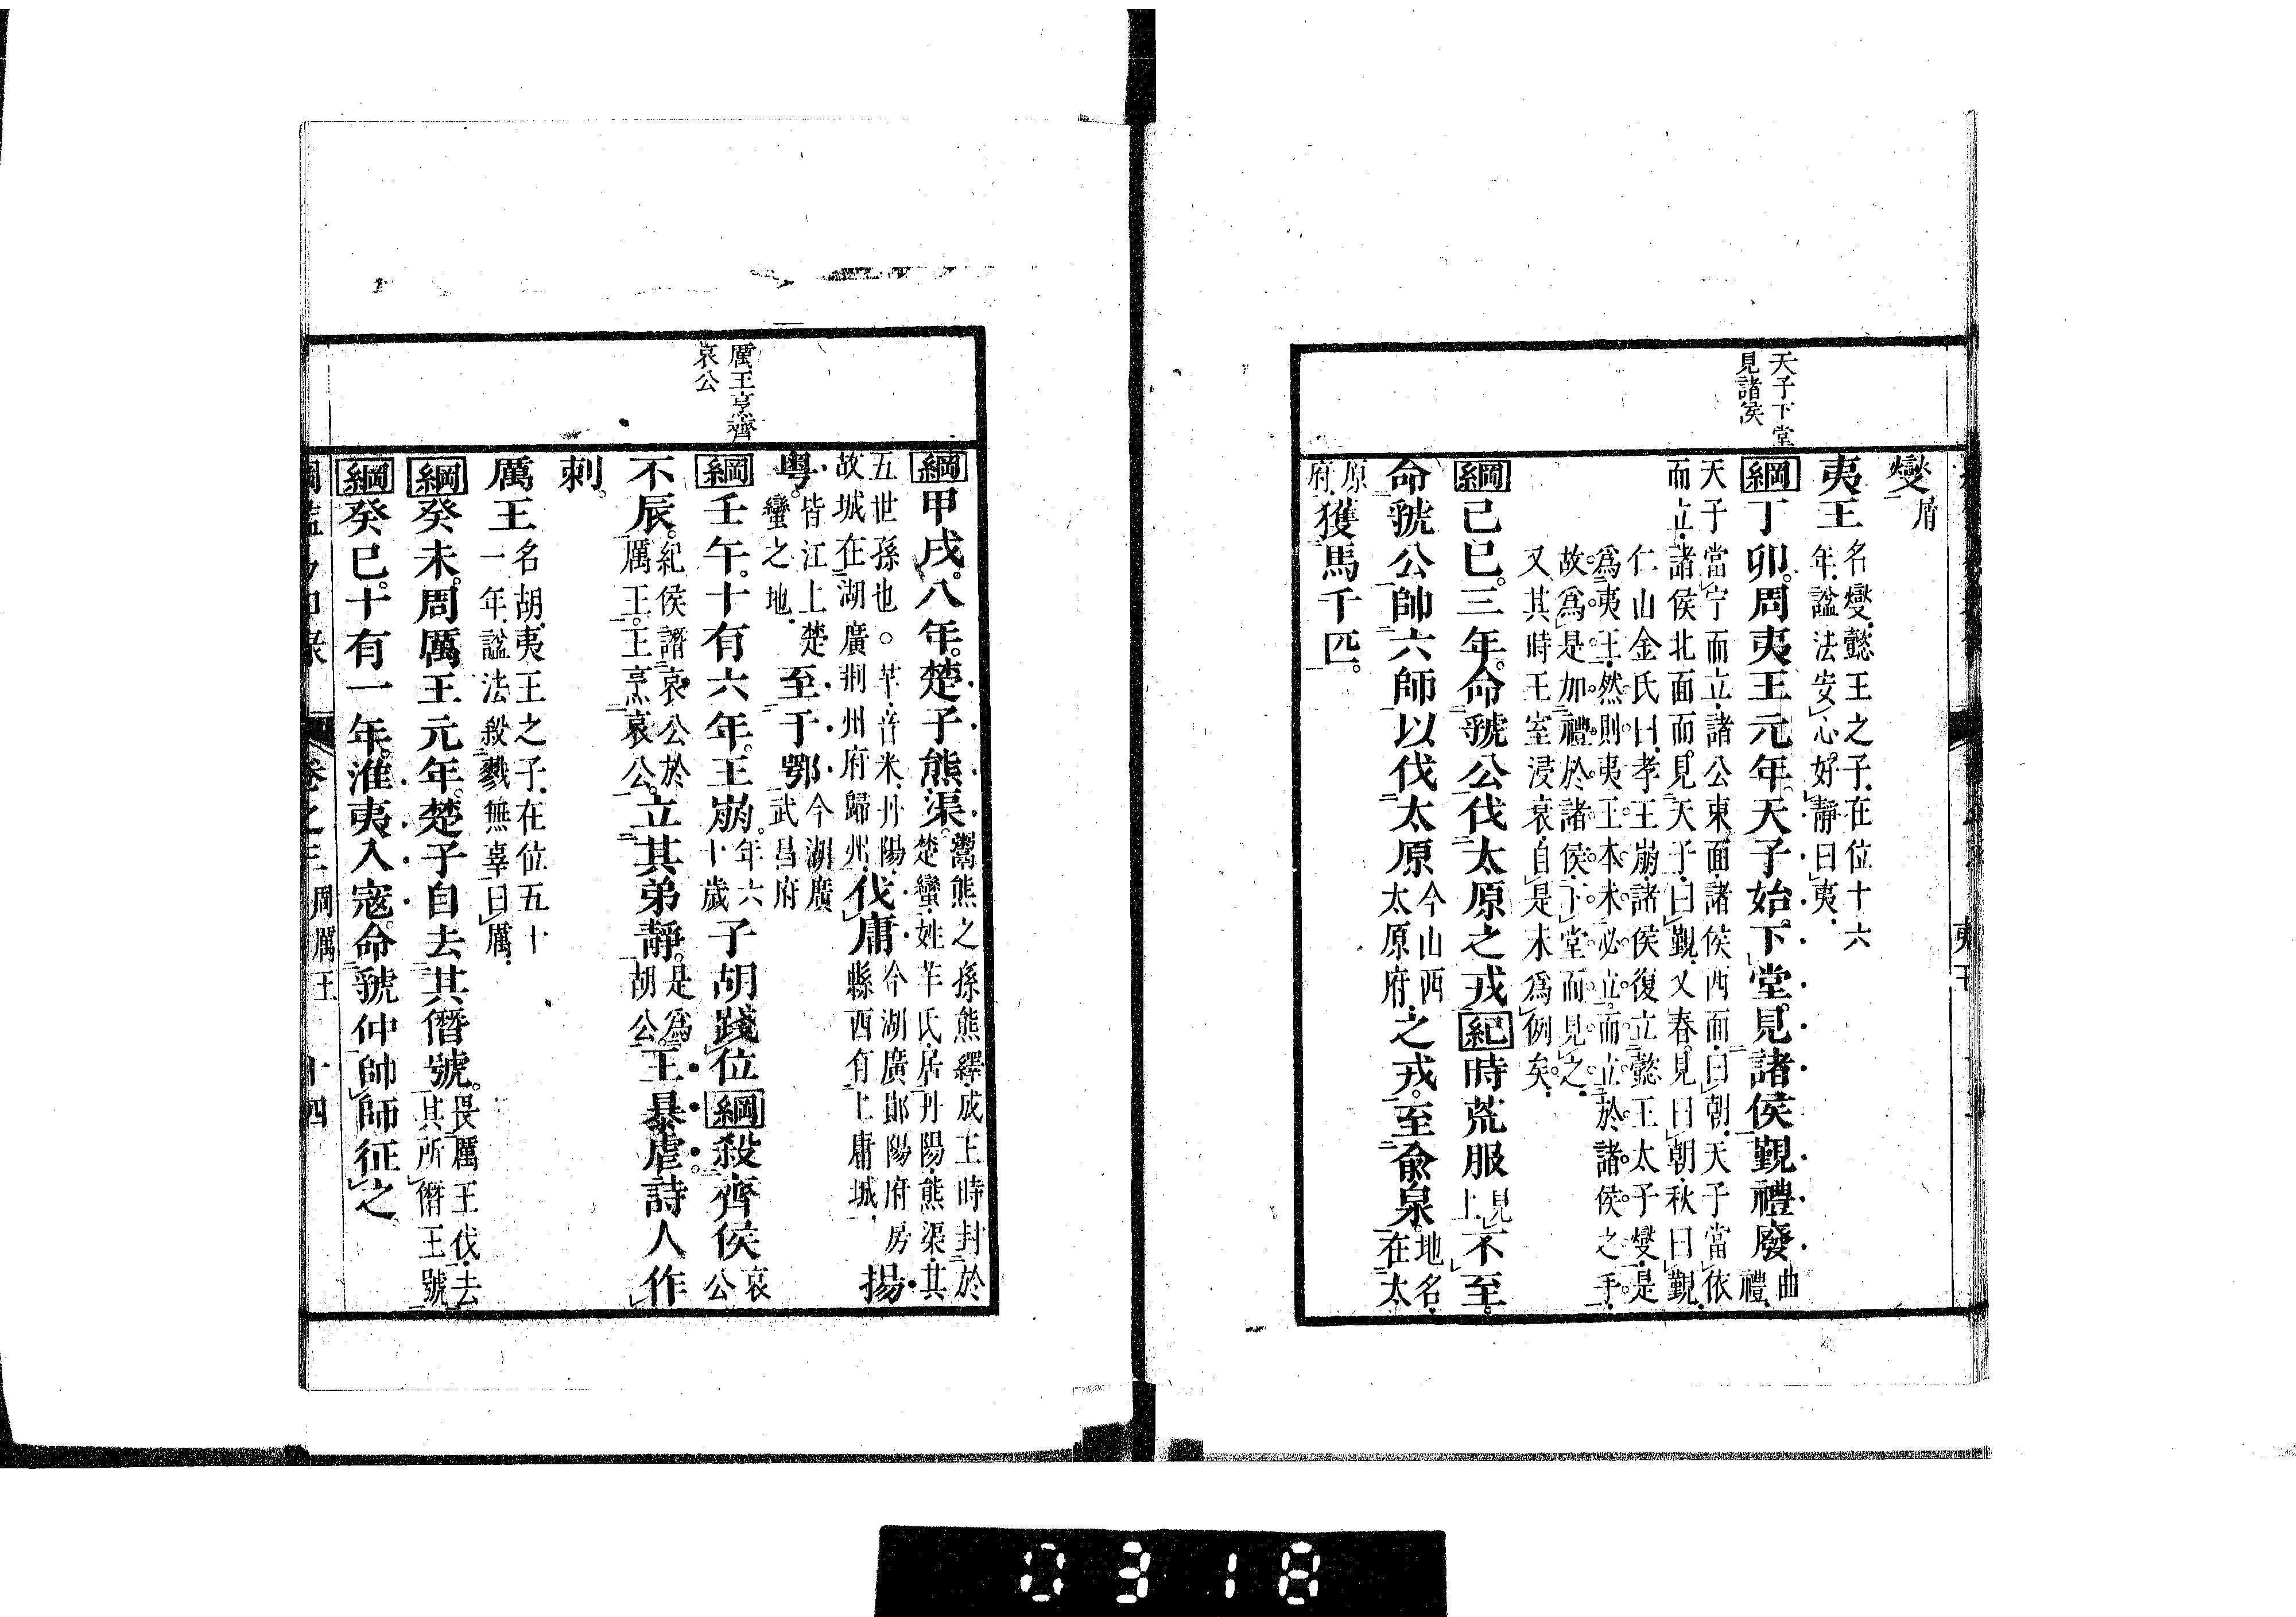 天子下堂
見諸侯
燮屑
夷王名燮懿王之子在位十六
年諡法安心好靜曰夷
綱丁卯周夷王元年天子始下堂見諸侯覲禮廢曲
禮
天子當宁而立諸公東面諸侯西面曰朝天子當依
而立諸侯北面而見天子曰覲又春見曰朝秋曰覲
仁山金氏曰孝王崩諸侯復立懿王太子燮是
爲夷王然則夷王本未必立而立於諸侯之手
故爲是加禮於諸侯下堂而見之
又其時王室浸衰自是末爲例矣
綱己巳三年命虢公伐太原之戎紀時荒服見
上不至
命虢公帥六師以伐太原今山西
太原府之戎至俞泉地名
在太
原
府獲馬千匹
夷王
厲王烹齊
哀公
綱甲戌八年楚子熊渠鬻熊之孫熊繹成王時封於
楚蠻姓芈氏居丹陽熊渠其
五世孫也○芈音米丹陽
故城在湖廣荆州府歸州伐庸今湖廣鄖陽府房
縣西有上庸城揚
粤皆江上楚
蠻之地至于鄂今湖廣
武昌府
綱壬午十有六年王崩年六
十歲子胡踐位綱殺齊侯哀
公
不辰紀侯譖哀公於
厲王王烹哀公立其弟靜是爲
胡公王暴虐詩人作
刺
厲王名胡夷王之子在位五十
一年諡法殺戮無辜曰厲
綱癸未周厲王元年楚子自去其僭號畏厲王伐去
其所僭王號
綱癸巳十有一年淮夷入寇命虢仲帥師征之
卷之三周厲王 十四
0318